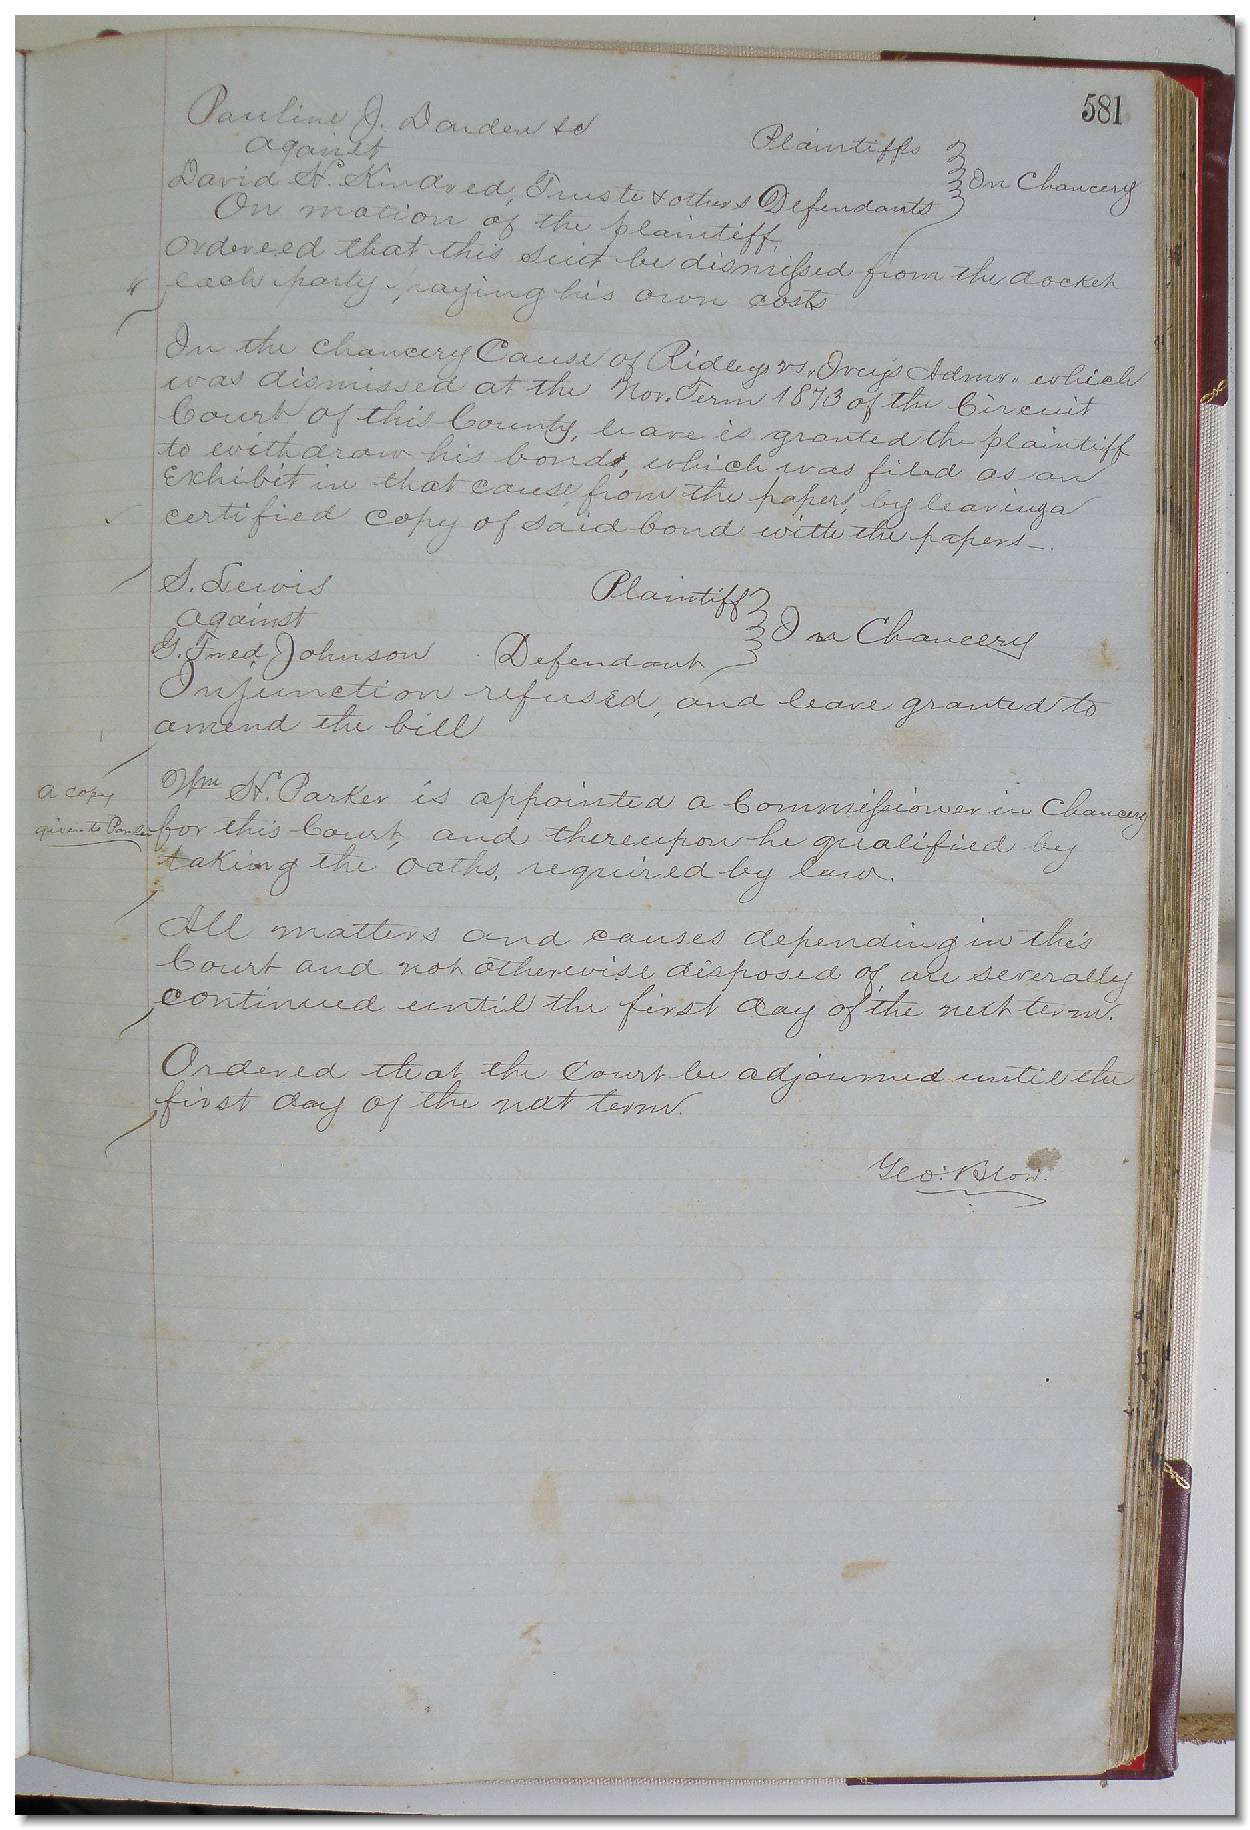 581
Pauline J. Darden &c
against Plaintiffs
David N. Kindred, Truste & others Defendants In Chancery
On motion of the plaintiff,
ordereed that this suit be dismissed from the docket
each party paying his own costs
In the chancery Cause of Ridley vs. Ivey's Admr. which
was dismissed at the Nov. Term 1873 of the Circuit
Court of this County, leave is granted the plaintiff
to withdraw his bond, which was filed as an
Exhibit in that cause, from the papers, by leaving a
certified copy of said bond with the papers—.
S. Lewis Plaintiff
against In Chancery
G. Fred. Johnson Defendant
Injunction refused, and leave granted to
amend the bill
a copy
given to Parker
Wm H. Parker is appointed a Commissioner in Chancery
for this Court, and thereupon he qualified by
taking the oaths, required by law.
All matters and causes depending in this
Court and not otherwise disposed of are severally
continued until the first day of the next term.
Ordered that the Court be adjourned until the
first day of the next term.
Geo: Blow.